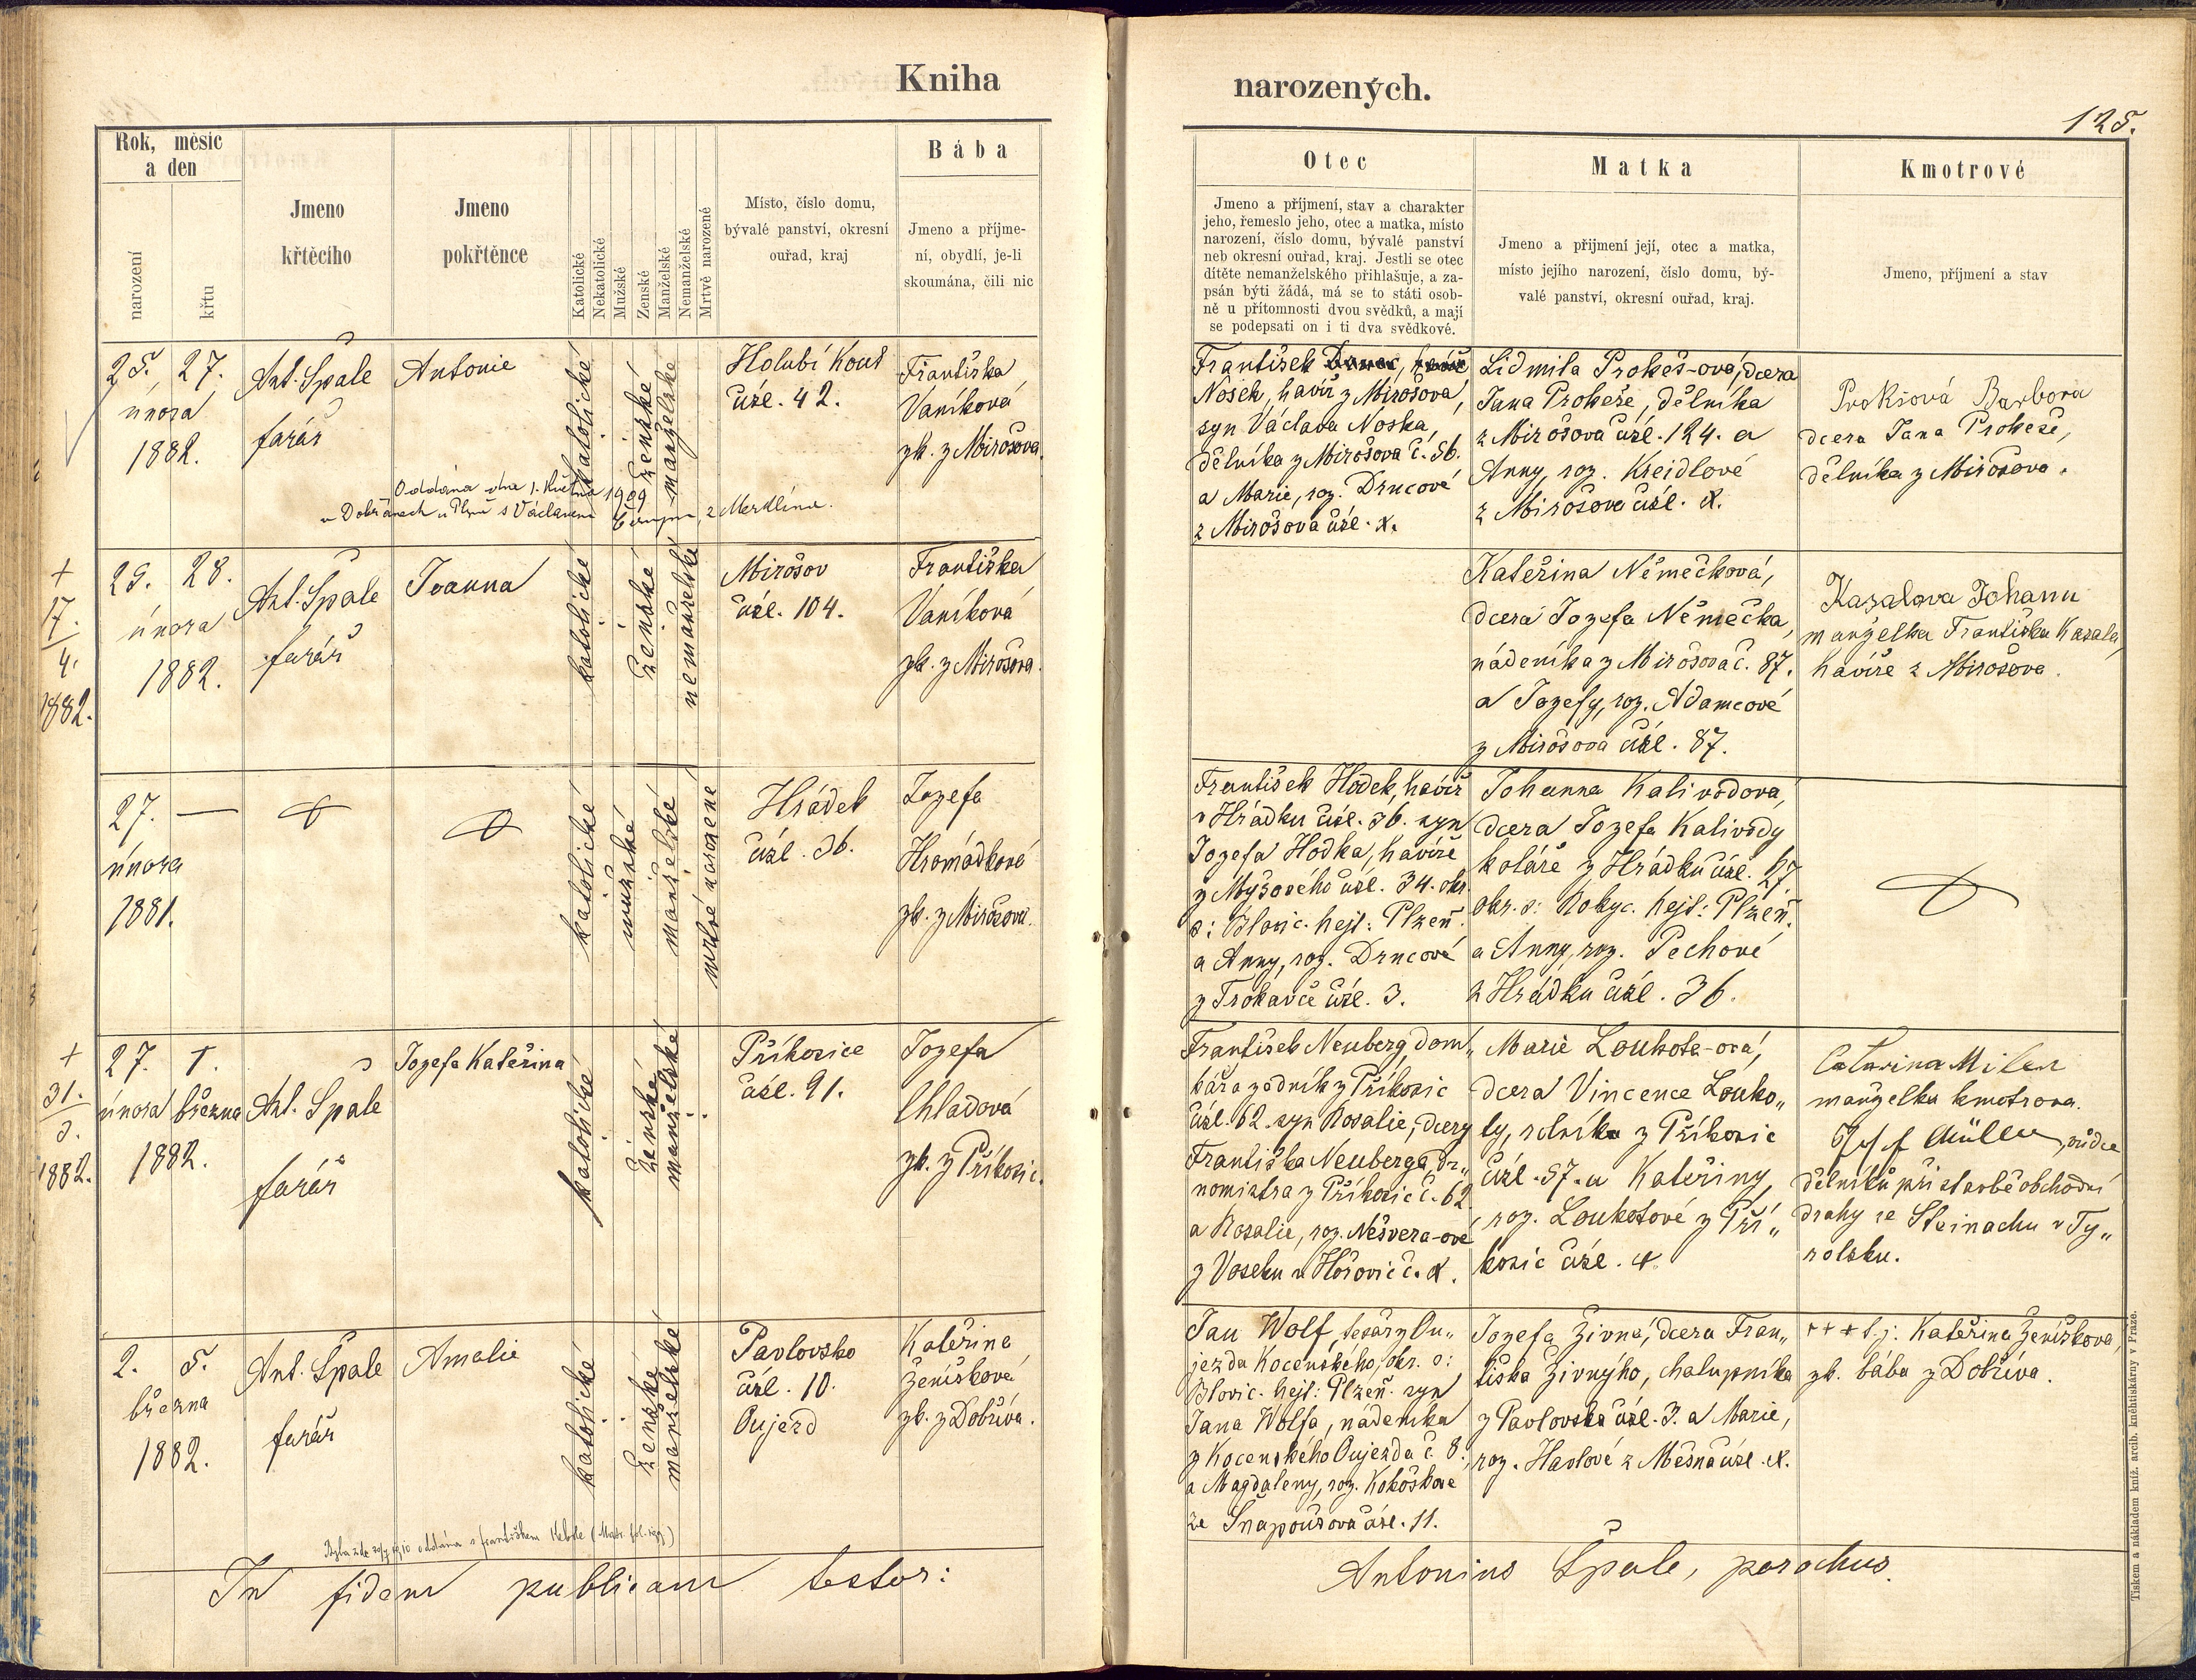 Kniha
narozených.
125.
Rok, měsíc
a den
narození
křtu
Jmeno
křtěcího
Jmeno
pokřtěnce
Katolické
Nekatolické
Mužské
Ženské
Manželské
Nemanželské
Mrtvě narozené
Místo, číslo domu,
bývalé panství, okresní
ouřad, kraj
Bába
Jmeno a příjme-
ní, obydlí, je-li
skoumána, čili nic
Otec
Jmeno a příjmení, stav a charakter
jeho, řemeslo jeho, otec a matka, místo
narození, číslo domu, bývalé panství
neb okresní ouřad, kraj. Jestli se otec
dítěte nemanželského přihlašuje, a za-
psán býti žádá, má se to státi osob-
ně u přítomnosti dvou svědků, a mají
se podepsati on i ti dva svědkové.
Matka
Jmeno a přijmení její, otec a matka,
místo jejího narození, číslo domu, bý-
valé panství, okresní ouřad, kraj.
Kmotrové
Jmeno, příjmení a stav
25. 27.
února
1882.
Ant. Špale
farář
Antonie
katolické
ženské
manželské
Holubí Kout
čísl. 42.
Františka
Vaníková
zk. z Mirošova.
Oddána dne 1. května 1909
v Dobřanech u Plzně s Václavem z Merklína.
František
Nosek, havíř z Mirošova,
syn Václava Noska,
dělníka z Mirošova č. 56.
a Marie, roz. Drncové
z Mirošova čísl. x.
Lidmila Prokeš-ová, dcera
Jana Prokeše, dělníka
z Mirošova čísl. 124. a
Anny, roz. Kreidlové
z Mirošova čísl. x.
Prokšová Barbora
dcera Jana Prokeše,
dělníka z Mirošova.
+
17.
4.
1882.
25. 28.
února
1882.
Ant. Špale
farář
Joanna
katolické
ženské
nemanželské
Mirošov
čísl. 104.
Františka
Vaníková
zk. z Mirošova.
Kateřina Němečková,
dcera Jozefa Němečka,
nádeníka z Mirošova č. 87.
a Jozefy, roz. Adamcové
z Mirošova čísl. 87.
Kazalova Johanu
manželka Františka Kazala,
havíře z Mirošova.
27. —
února
1881.
katolické
mužské
manželské
mrtvě narozené
Hrádek
čísl. 36.
Jozefa
Hromádková
zk. z Mirošova.
František Hodek, havíř
v Hrádku čísl. 36. syn
Jozefa Hodka, havíře
z Myšového čísl. 34. okr.
o: Blovic. hejt: Plzeň.
a Anny, roz. Drncové
z Trokavce čísl. 3.
Johanna Kalivodova,
dcera Jozefa Kalivody
koláře z Hrádku čísl. 27.
okr. o: Rokyc. hejt: Plzeň.
a Anny, roz. Pechové
z Hrádku čísl. 36.
+
31.
3.
1882.
27. 1.
února března
1882.
Ant. Špale
farář
Jozefa Kateřina
katolické
ženské
manželské
Příkosice
čísl. 91.
Jozefa
Chladová
zk. z Příkosic.
František Neuberg, dom„
kář a zedník z Příkosic
čísl. 62. syn Rosalie, dcery
Františka Neuberga, dr„
nomistra z Příkosic č. 62
a Rosalie, roz. Nešvera-ové
z Voseku u Hořovic č. x.
Marie Loukota-ová,
dcera Vincence Louko„
ty, rolníka z Příkosic
čísl. 57. a Kateřiny,
roz. Loukotové z Pří„
kosic čísl. x.
Catarina Miler
manželka kmotrova.
Josef Müller, vůdce
dělníků při stavbě obchodní
dráhy ve Steinachu v Ty„
rolsku.
2. 5.
března
1882.
Ant. Špale
farář
Amalie
katolické
ženské
manželské
Pavlovsko
čísl. 10.
Oujezd
Kateřina
Ženíšková
zk. z Dobříva.
Jan Wolf, tesář z Ou„
jezda Kocenského, okr. o:
Blovic. hejt: Plzeň. syn
Jana Wolfa, nádeníka
z Kocenského Oujezda č. 8.,
a Magdaleny, roz. Kohoškové
ze Šnapoušova čísl. 11.
Jozefa Živna, dcera Fran„
tiška Živnýho, chalupníka
z Pavlovska čísl. 3. a Marie,
roz. Havlové z Mešna čísl. x.
+++ t. j: Kateřina Ženíškova,
zk. bába z Dobříva.
In fidem publicam testor:
Antonius Špale, parochus.
Tiskem a nákladem kníž. arcib. kněhtiskárny v Praze.